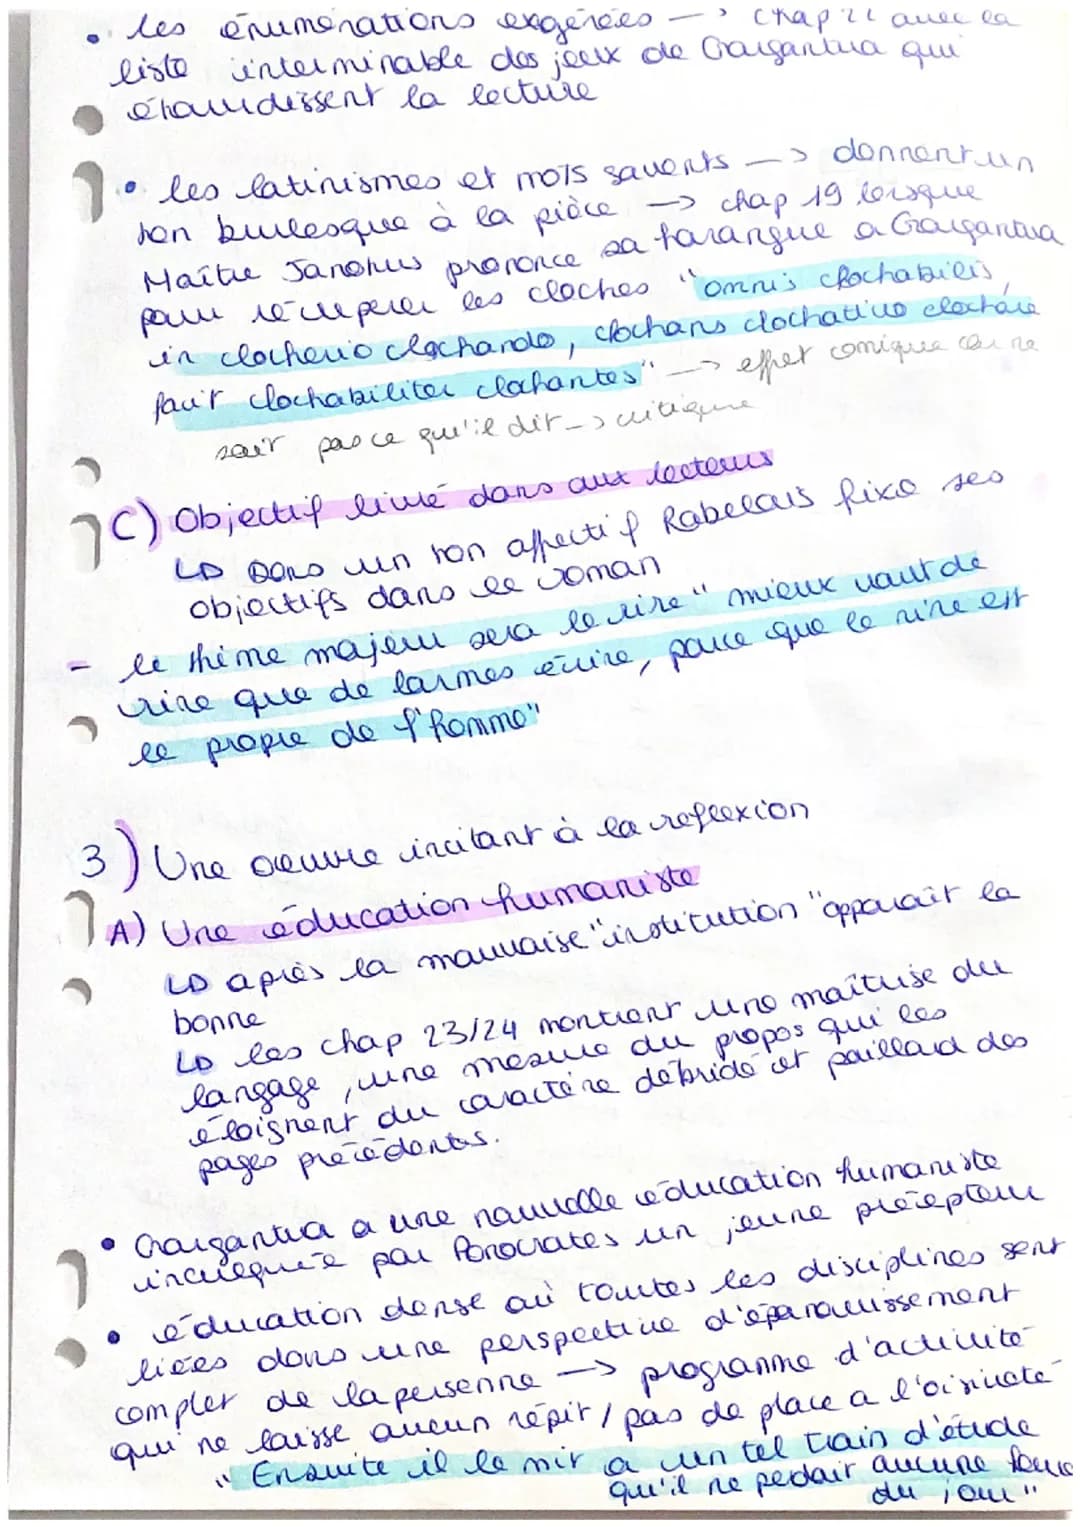 • les énumérations exgérées —> chap 22 avec la
liste interminable des jeux de Gargantua qui
étourdissent la lecture
• les latinismes et mots savents —> donnent un
ton burlesque à la pièce —> chap 19 lorsque
Maître Janotus prononce sa harangue a Gargantua
pour récuperer les cloches "omnis clochabilis,
in clocherio clochando, clochans clochativo clochare
fait clochabiliter clochantes" —> effet comique car ne
sait pas ce qu'il dit —> critique
C) Objectif livré dans aux lecteurs
↳ Dans un ton affectif Rabelais fixe ses
objectifs dans le roman
- le thème majeur sera le rire "mieux vaut de
rire que de larmes écrire, parce que le rire est
le propre de l'homme"
3) Une oeuvre incitant à la reflexion
A) Une éducation humaniste
↳ après la mauvaise "institution" apparaît la
bonne
↳ les chap 23/24 montrent une maîtrise du
langage, une mesure du propos qui les
éloignent du caractère débridé et paillard des
pages précédents.
• Gargantua a une nouvelle éducation humaniste
inculquée par Ponocrates un jeune précepteur
• éducation dense où toutes les disciplines sont
liées dans une perspective d'épanouissement
complet de la personne —> programme d'activité
qui ne laisse aucun répit / pas de place a l'oisiveté
"Ensuite il le mit a un tel train d'étude
qu'il ne perdait aucune heure
du jour"